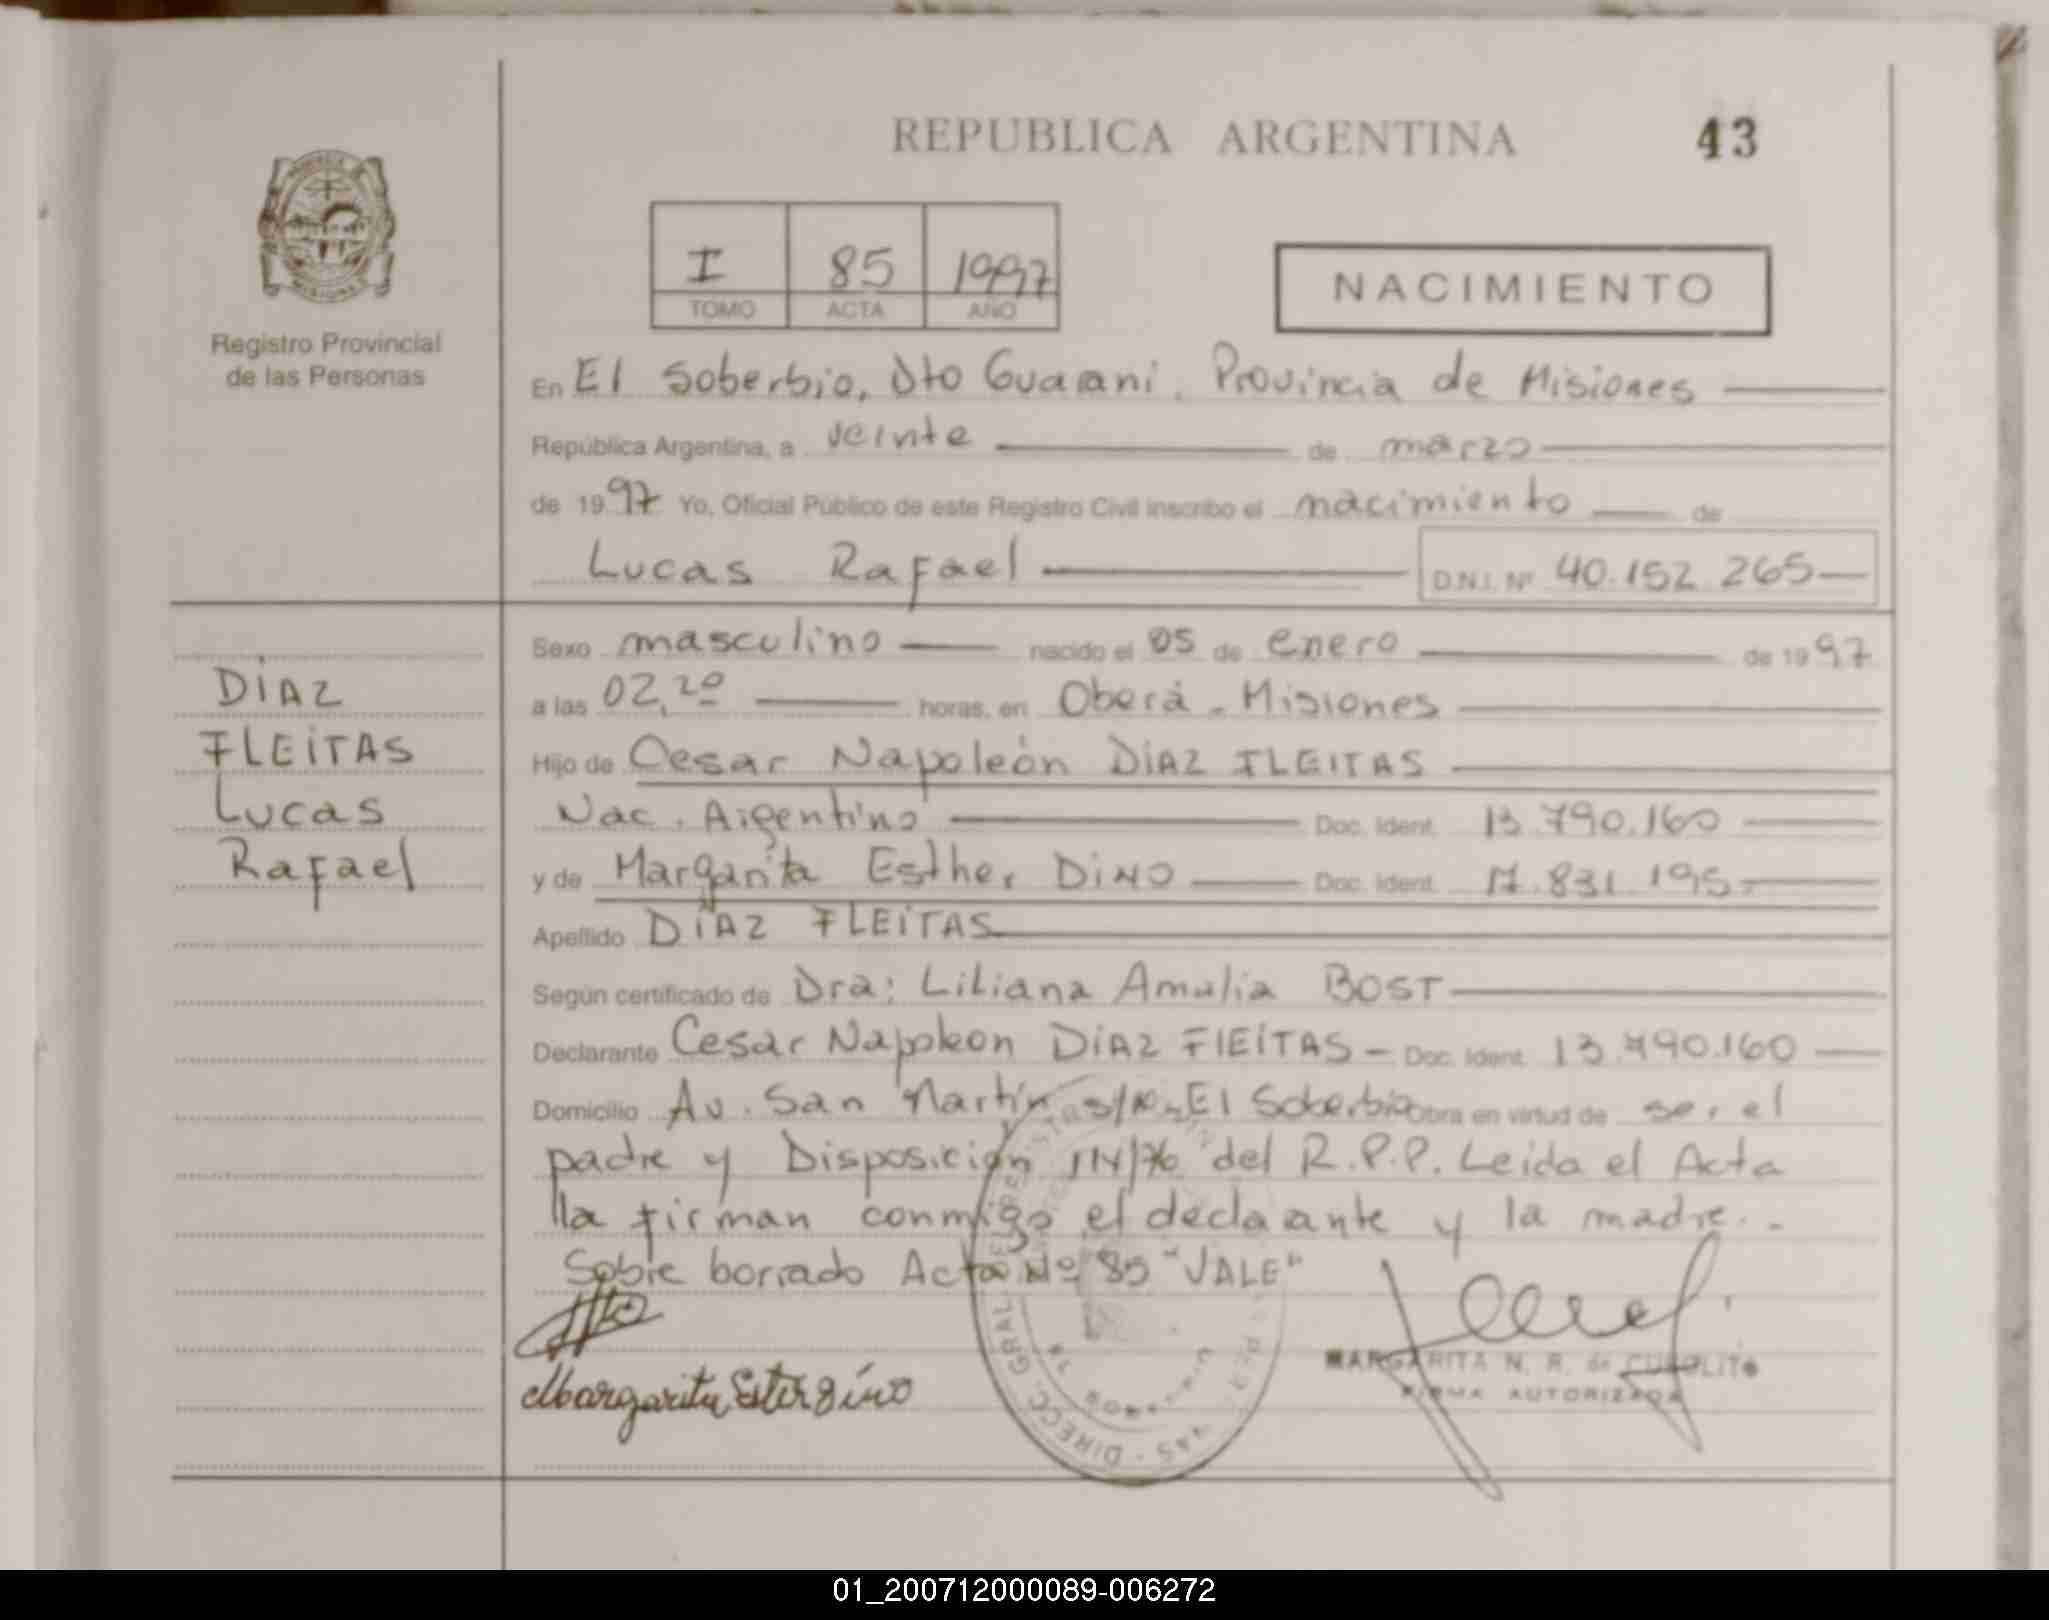 REPUBLICA ARGENTINA 43
I 85 1997
TOMO ACTA AÑO
NACIMIENTO
Registro Provincial
de las Personas
En El Soberbio, Dto Guarani. Provincia de Misiones
República Argentina, a veinte de marzo
de 1997 Yo, Oficial Público de este Registro Civil inscribo el nacimiento de
Lucas Rafael D.N.I. Nº 40.152.265
Sexo masculino nacido el 05 de enero de 1997
a las 02,20 horas, en Oberá - Misiones
Hijo de Cesar Napoleón DíAZ FLEITAS
Nac. Argentino Doc. Ident. 13.790.160
y de Margarita Esther DiNO Doc. Ident. 17.831.195.-
Apellido DíAZ FLEiTAS
Según certificado de Dra: Liliana Amalia BOST
Declarante Cesar Napoleon DíAZ FlEíTAS - Doc. Ident. 13.790.160
Domicilio Av. San Martín s/n - El Soberbio Obra en virtud de ser el
padre y Disposición 114/76 del R.P.P. Leida el Acta
la firman conmigo el declarante y la madre.-
Sobre borrado Acta Nº 85 "VALE"
DiAZ
FLEiTAS
Lucas
Rafael
MARGARITA N. R. de
FIRMA AUTORIZADA
DIRECC. GRAL.
01_200712000089-006272